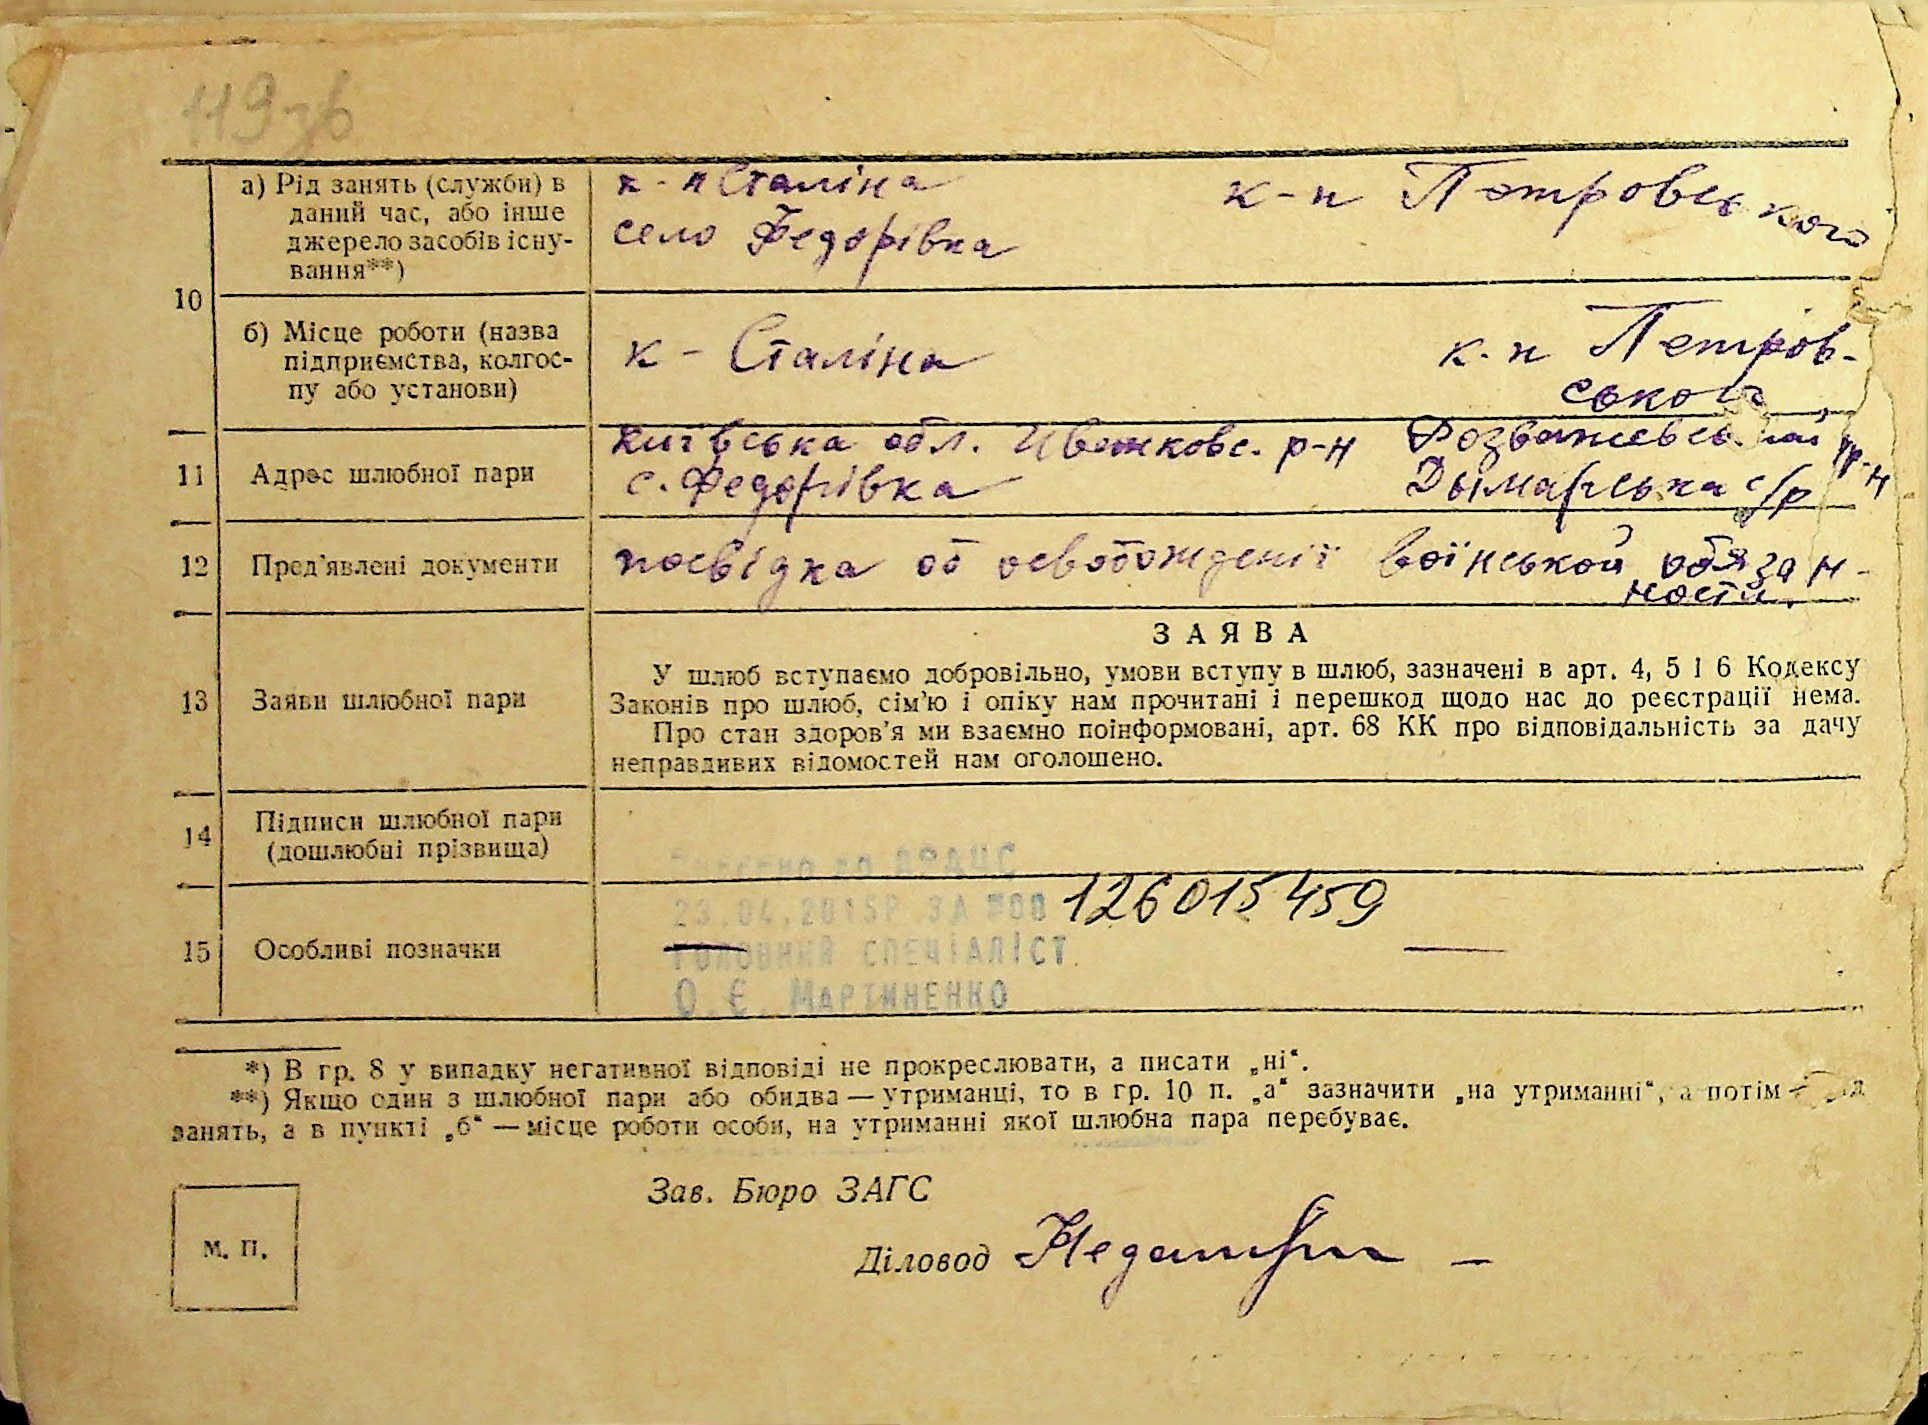 119 зв
а) Рід занять (служби) в
даний час, або інше
джерело засобів існу-
вання**)
к-п Сталіна
село Федорівка
к-п Петровського
10
б) Місце роботи (назва
підприємства, колгос-
пу або установи)
к - Сталіна
к.п Петров-
ського
11 Адрес шлюбної пари
Київська обл. Іванковс. р-н
с. Федорівка
Розважевський р-н
Дымарська с/р
12 Пред'явлені документи
посвідка об освобожденії воїнськой обязан-
ности.
13 Заяви шлюбної пари
ЗАЯВА
У шлюб вступаємо добровільно, умови вступу в шлюб, зазначені в арт. 4, 5 і 6 Кодексу
Законів про шлюб, сім'ю і опіку нам прочитані і перешкод щодо нас до реєстрації нема.
Про стан здоров'я ми взаємно поінформовані, арт. 68 КК про відповідальність за дачу
неправдивих відомостей нам оголошено.
14 Підписи шлюбної пари
(дошлюбні прізвища)
до ДРАЦС
23.04.2015Р ЗА №00 126015459
15 Особливі позначки
ГОЛОВНИЙ СПЕЦІАЛІСТ
О.Є. МАРТИНЕНКО
*) В гр. 8 у випадку негативної відповіді не прокреслювати, а писати „ні“.
**) Якщо один з шлюбної пари або обидва — утриманці, то в гр. 10 п. „а“ зазначити „на утриманні“, а потім —
занять, а в пункті „б“ — місце роботи особи, на утриманні якої шлюбна пара перебуває.
Зав. Бюро ЗАГС
М. П.
Діловод